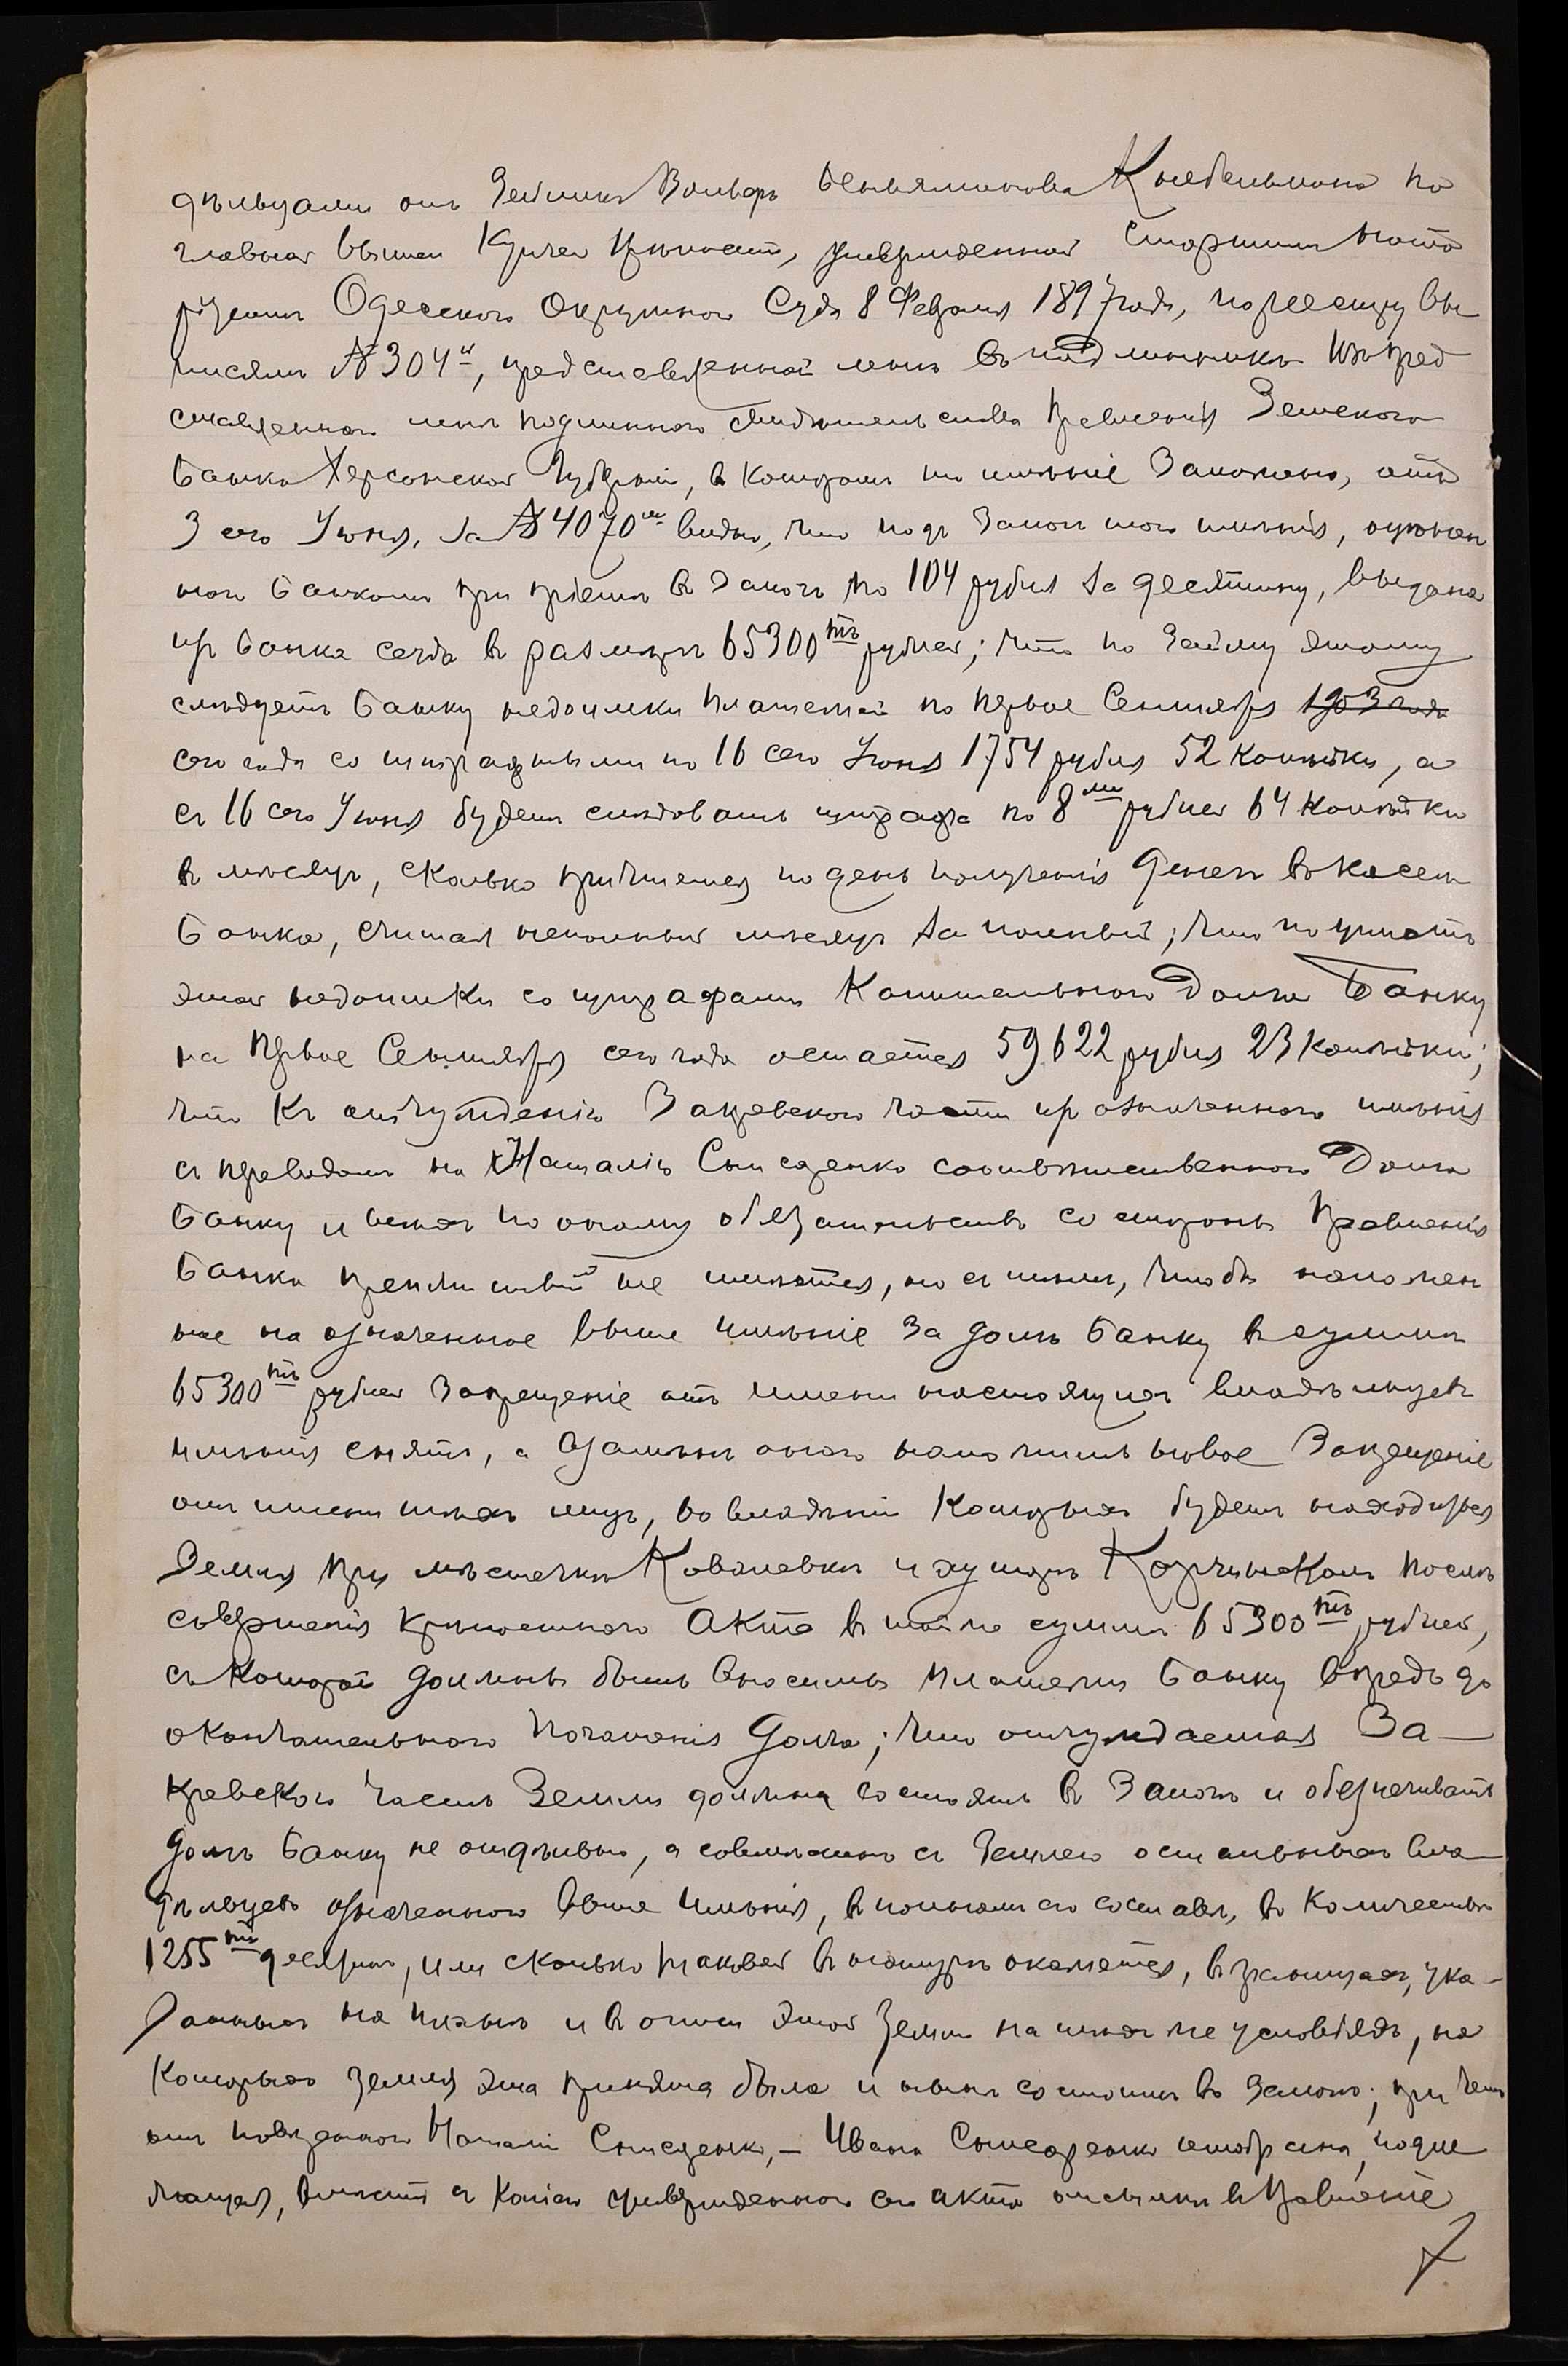 дѣльцами отъ Зейлика Вольфъ Беньяминова Кнебельмана по
главной выписи Купчей Крѣпости, утвержденной Старшимъ Нота
ріусомъ Одесскаго Окружнаго Суда 8 Февраля 1897 года, по реестру вы
писямъ № 304й, представленной мнѣ въ подлинникѣ. Изъ пред
ставленнаго мнѣ подлиннаго свидѣтельства Правленія Земскаго
Банка Херсонской Губерніи, въ которомъ то имѣніе Заложено, отъ
3 сего Іюня, за № 4070мъ видно, что подъ Залогъ того имѣнія, оцѣнен
наго Банкомъ при пріемѣ въ Залогъ по 104 рубля за десятину, выдана
изъ банка ссуда въ размѣрѣ 65300тъ рублей; что по Займу этому
слѣдуетъ Банку недоимки платежей по первое Сентября 1903 года
сего года со штрафными по 16 сего Іюня 1754 рубля 52 Копѣйки, а
съ 16 сего Іюня будетъ слѣдовать штрафа по 8ми рублей 64 копѣйки
въ мѣсяцъ, сколько причтется по день полученія денегъ въ Кассѣ
Банка, считая неполный мѣсяцъ за полный; что по уплатѣ
этой недоимки со штрафами Капитальнаго Долга Банку
на первое Сентября сего года остается 59622 рубля 23 Копѣйки;
что къ отчужденію Закревскою части изъ означеннаго имѣнія
съ переводомъ на Наталію Снисаренко соотвѣтственнаго Долга
Банку и всѣхъ по оному обязательствъ со стороны Правленія
Банка препятствій не имѣется, но съ тѣмъ, чтобы наложен
ное на означенное выше имѣніе за долгъ Банку въ суммѣ
65300тъ рублей Запрещеніе отъ имени настоящихъ владѣльцевъ
имѣнія снять, а взамѣнъ онаго наложить новое Запрещеніе
отъ имени тѣхъ лицъ, во владѣніи Которыхъ будетъ находиться
Земля при мѣстечкѣ Ковалевкѣ и хуторѣ послѣ
совершенія крѣпостнаго Акта въ той же суммѣ 65300тъ рублей,
съ Которой должны быть вносимы платежи Банку впредь до
окончательнаго погашенія Долга; что отчуждаемая За-
кревскою часть Земли должна состоять въ Залогѣ и обезпечивать
долгъ Банку не отдѣльно, а совмѣстно съ Землею остальныхъ вла-
дѣльцевъ означеннаго выше имѣнія, въ полномъ его составѣ, въ Количествѣ
1255ти десятинъ, или сколько таковой въ натурѣ окажется, въ границахъ, ука-
занныхъ на планѣ и въ описи этой Земли на тѣхъ же условіяхъ, на
Которыхъ Земля эта принята была и нынѣ состоитъ въ Залогѣ; при чемъ
отъ повѣреннаго Наталіи Снисаренко, - Ивана Снисаренко отобрана, подле
жащая, вмѣстѣ съ Копіею утвержденнаго сего акта отсылкѣ въ Правленіе